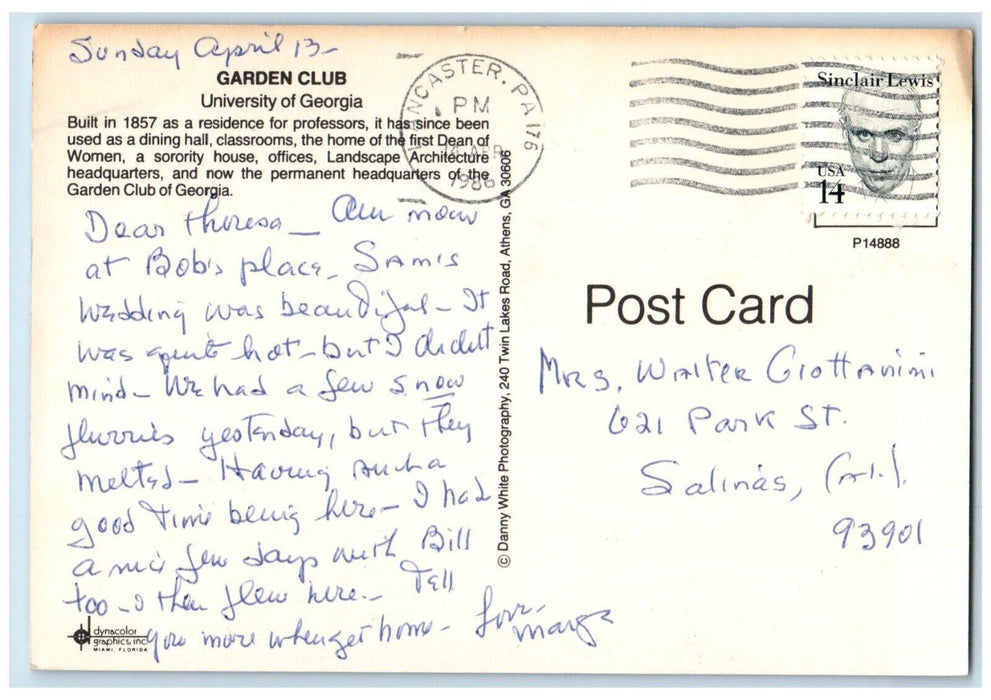 Sunday April 13-
GARDEN CLUB
University of Georgia
Built in 1857 as a residence for professors, it has since been
used as a dining hall, classrooms, the home of the first Dean of
Women, a sorority house, offices, Landscape Architecture
headquarters, and now the permanent headquarters of the
Garden Club of Georgia.
Dear Theresa - Am now
at Bob's place. Sam's
wedding was beautiful - It
was quite hot - but I didn't
mind - We had a few snow
flurries yesterday, but they
melted - Having such a
good time being here - I had
a nice few days with Bill
too - I then flew here - Tell
you more when get home - Love,
Marge
dynacolor
graphics, inc.
MIAMI, FLORIDA
© Danny White Photography, 240 Twin Lakes Road, Athens, GA 30606
LANCASTER, PA 176
PM
14 APR
1986
Sinclair Lewis
USA
14
P14888
Post Card
Mrs. Walter Giottonini
621 Park St.
Salinas, Cal.
93901